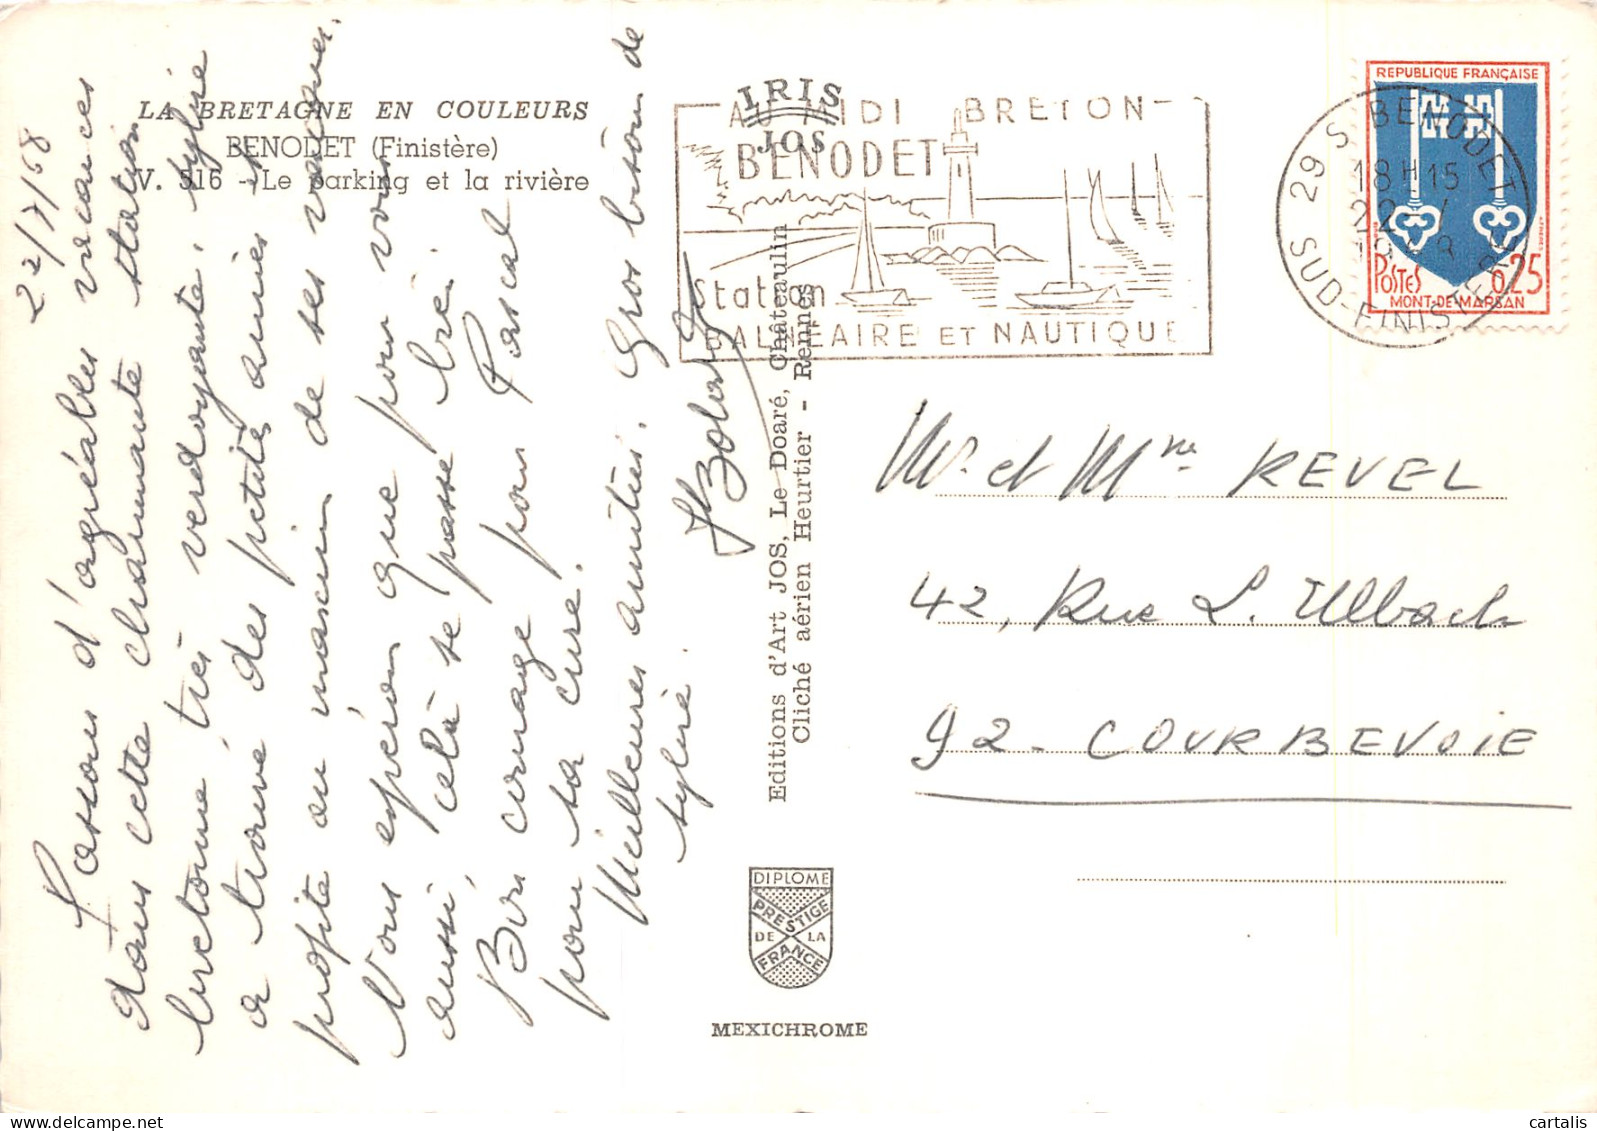 LA BRETAGNE EN COULEURS
BENODET (Finistère)
V. 516 - Le parking et la rivière
22/7/68
Passons d'agréables vacances
dans cette charmante station
bretonne très verdoyante, Sylvie
a trouvé des petites amies et
profite au maximum de ses vacances.
Nous espérons que pour vous
aussi, celà se passe bien.
Bon courage pour Pascal
pour sa cure.
Meilleures amitiés. Gros bisous de
Sylvie.
IRIS
JOS
AU MIDI BRETON
BENODET
Station
BALNEAIRE ET NAUTIQUE
REPUBLIQUE FRANÇAISE
POSTES 0,25
MONT-DE-MARSAN
29 S BENODET
18H15
22
SUD-FINISTERE
Editions d'Art JOS, Le Doaré, Châteaulin
Cliché aérien Heurtier - Rennes
Mr et Mme REVEL
42, Rue L. Ulbach
92 - COURBEVOIE
DIPLOME
PRESTIGE
DE LA
FRANCE
MEXICHROME
cartalis